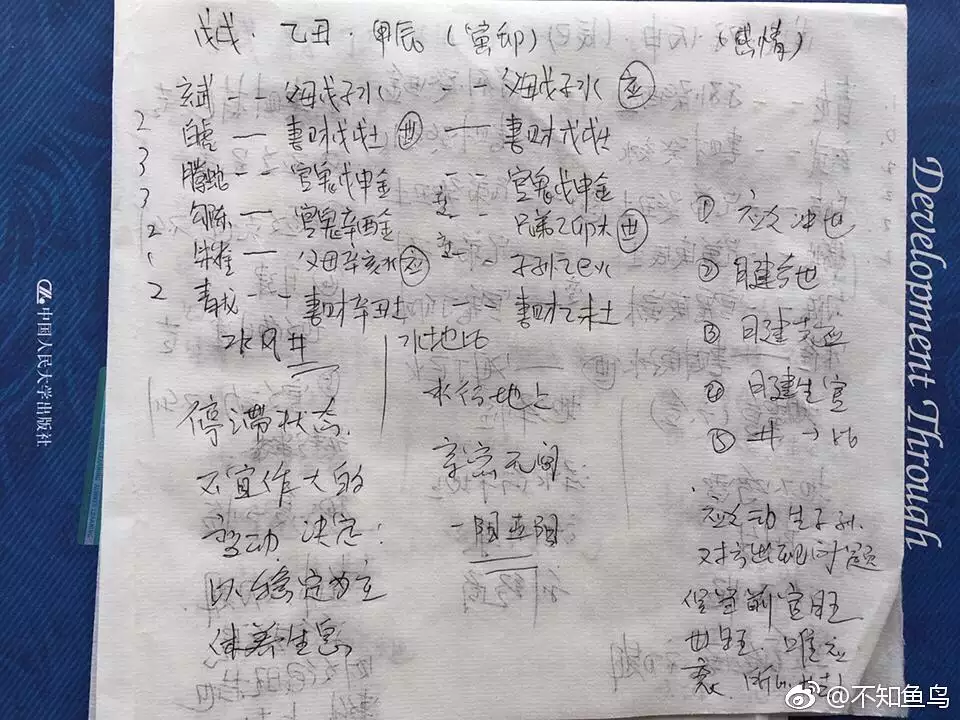 戊戌·乙丑·甲辰（寅卯） （感情）
玄武 -- 父母戊子水 -- 父母戊子水 应
2 白虎 — 妻财戊戌土 世 — 妻财戊戌土
3 腾蛇 -- 官鬼戊申金 -- 官鬼戊申金
3 勾陈 — 官鬼辛酉金 -- 兄弟乙卯木 世
2 朱雀 — 父母辛亥水 应 -- 子孙乙巳火
2 青龙 -- 妻财辛丑土 -- 妻财乙未土
水风井
水地比
停滞状态
不宜作大的
变动 决定:
以稳定为主
休养生息
水行地上
亲密无间
一阳五阴
① 应冲世
② 日建
③ 日建克应
④ 日建生官
⑤ 井→比
应动生子孙.
对方出现问题
官旺
世旺. 唯应
衰.
中国人民大学出版社
Development Through
@不知鱼鸟